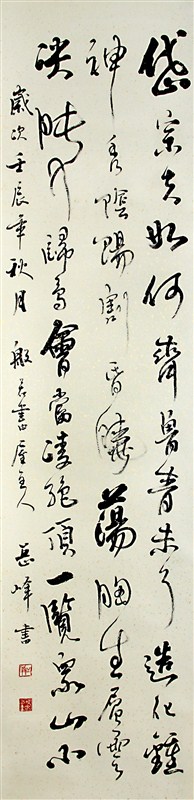 岱宗夫如何齊魯青未了造化鍾
神秀陰陽割昏曉蕩胸生層雲
決眥入歸鳥會當凌絕頂一覽眾山小
歲次壬辰年秋月般若書屋主人岳峰書